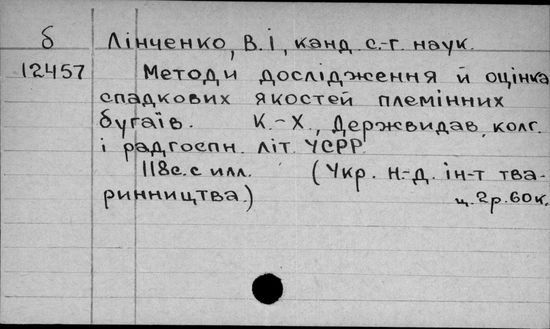 б Лінченко, В. І, канд. с.-г. наук.
12457 Методи дослідження й оцінка
спадкових якостей племінних
бугаїв. К.-Х., Держвидав. колг.
і радгоспн. літ. УСРР.
118с. с илл. (Укр. н.-д. ін-т тва-
ринництва.) ц. 2р. 60к.